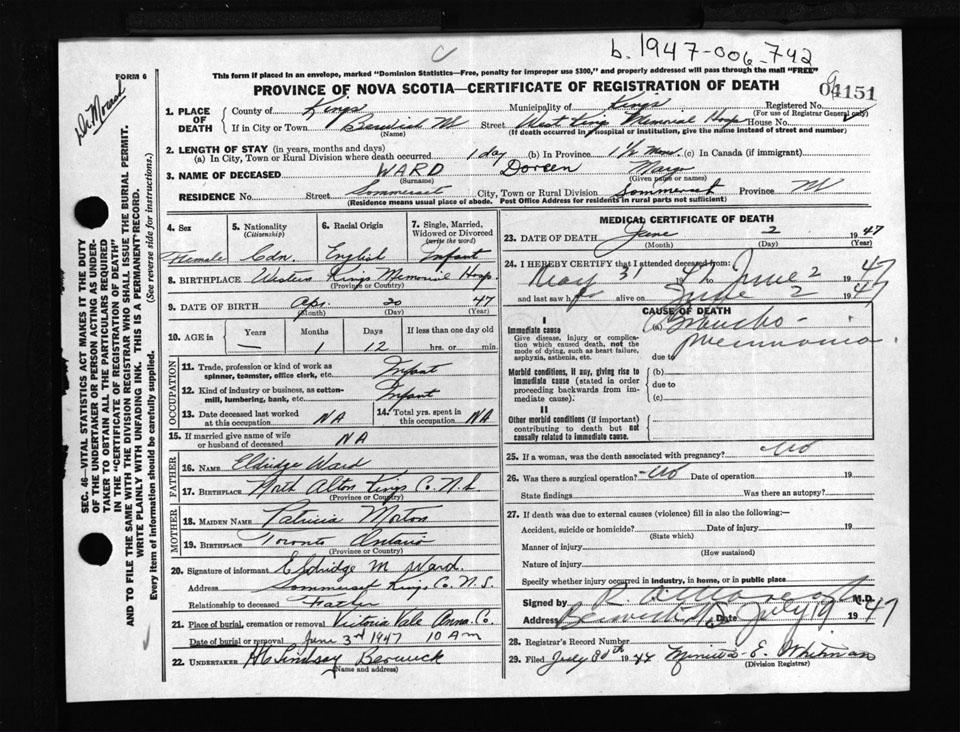 b. 1947-006-742
FORM 6
This form if placed in an envelope, marked "Dominion Statistics—Free, penalty for improper use $300," and properly addressed will pass through the mail "FREE"
PROVINCE OF NOVA SCOTIA—CERTIFICATE OF REGISTRATION OF DEATH
04151
1. PLACE OF DEATH
County of Kings Municipality of Kings Registered No.
(For use of Registrar General only)
If in City or Town Berwick Street West Kings Memorial Hosp House No.
(Name) (If death occurred in a hospital or institution, give the name instead of street and number)
2. LENGTH OF STAY (in years, months and days)
(a) In City, Town or Rural Division where death occurred 1 day (b) In Province 1 1/2 mons. (c) In Canada (if immigrant)
3. NAME OF DECEASED WARD Doreen Mary
(Surname) (Given name or names)
RESIDENCE No. Street Sommerset City, Town or Rural Division Sommerset Province
(Residence means usual place of abode. Post Office Address for residents in rural parts not sufficient)
4. Sex Female
5. Nationality (Citizenship) Cdn.
6. Racial Origin English
7. Single, Married, Widowed or Divorced (write the word) Infant
8. BIRTHPLACE Western Kings Memorial Hosp.
(Province or Country)
9. DATE OF BIRTH Apr. 20 47
(Month) (Day) (Year)
10. AGE in Years Months Days If less than one day old
— 1 12 hrs. or min.
OCCUPATION
11. Trade, profession or kind of work as spinner, teamster, office clerk, etc. Infant
12. Kind of industry or business, as cotton-mill, lumbering, bank, etc. Infant
13. Date deceased last worked at this occupation NA 14. Total yrs. spent in this occupation NA
15. If married give name of wife or husband of deceased NA
FATHER
16. NAME Eldridge Ward
17. BIRTHPLACE North Alton Kings Co. N.S.
(Province or Country)
MOTHER
18. MAIDEN NAME Patricia Morton
19. BIRTHPLACE Toronto Ontario
(Province or Country)
20. Signature of informant Eldridge M Ward.
Address Sommerset Kings Co. N.S.
Relationship to deceased Father
21. Place of burial, cremation or removal Victoria Vale Anna. Co.
Date of burial or removal June 3rd 1947 10 AM
22. UNDERTAKER Lindsay Berwick
(Name and address)
MEDICAL CERTIFICATE OF DEATH
23. DATE OF DEATH June 2 1947
(Month) (Day) (Year)
24. I HEREBY CERTIFY that I attended deceased from:
May 31 47 to June 2 1947
and last saw h alive on June 2 1947
CAUSE OF DEATH
I
Immediate cause
Give disease, injury or complication which caused death, not the mode of dying, such as heart failure, asphyxia, asthenia, etc.
(a) Broncho-pneumonia.
due to
Morbid conditions, if any, giving rise to immediate cause (stated in order proceeding backwards from immediate cause).
(b)
due to
(c)
II
Other morbid conditions (if important) contributing to death but not causally related to immediate cause.
25. If a woman, was the death associated with pregnancy? No
26. Was there a surgical operation? No Date of operation 19
State findings Was there an autopsy?
27. If death was due to external causes (violence) fill in also the following:—
Accident, suicide or homicide? Date of injury 19
(State which)
Manner of injury
(How sustained)
Nature of injury
Specify whether injury occurred in industry, in home, or in public place
Signed by M.D.
Address Berwick Date July 19 1947
28. Registrar's Record Number
29. Filed July 30th 1947 E. Whitman
(Division Registrar)
SEC. 46—VITAL STATISTICS ACT MAKES IT THE DUTY OF THE UNDERTAKER OR PERSON ACTING AS UNDERTAKER TO OBTAIN ALL THE PARTICULARS REQUIRED IN THE "CERTIFICATE OF REGISTRATION OF DEATH" AND TO FILE THE SAME WITH THE DIVISION REGISTRAR WHO SHALL ISSUE THE BURIAL PERMIT.
WRITE PLAINLY WITH UNFADING INK. THIS IS A PERMANENT RECORD.
Every item of information should be carefully supplied. (See reverse side for instructions.)